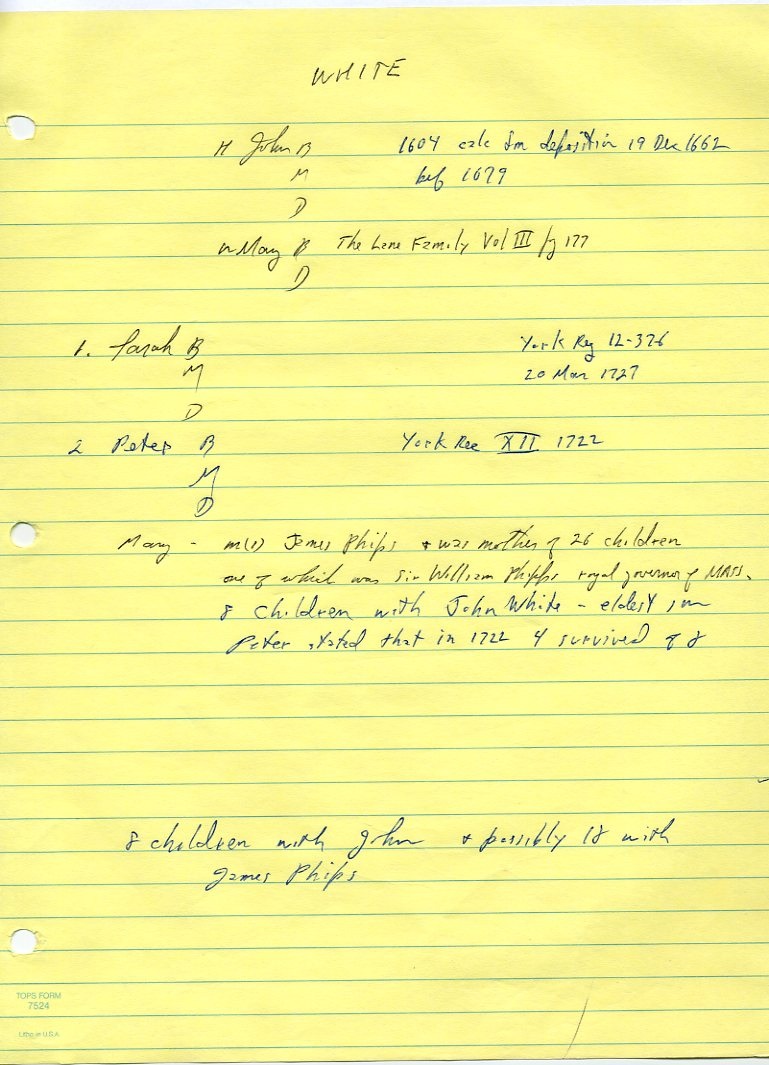 WHITE
H John B 1604 calc fm deposition 19 Dec 1662
M bef 1679
D
w Mary B The Lane Family Vol III pg 177
D
1. Sarah B York Reg 12-376
M 20 Mar 1727
D
2 Peter B York Rec XII 1722
M
D
Mary - m(1) James Phips + was mother of 26 children
one of which was Sir William Phipps royal governor of MASS.
8 children with John White - eldest son
Peter stated that in 1722 4 survived of 8
8 children with John + possibly 18 with
James Phips
TOPS FORM
7524
Litho in U.S.A.